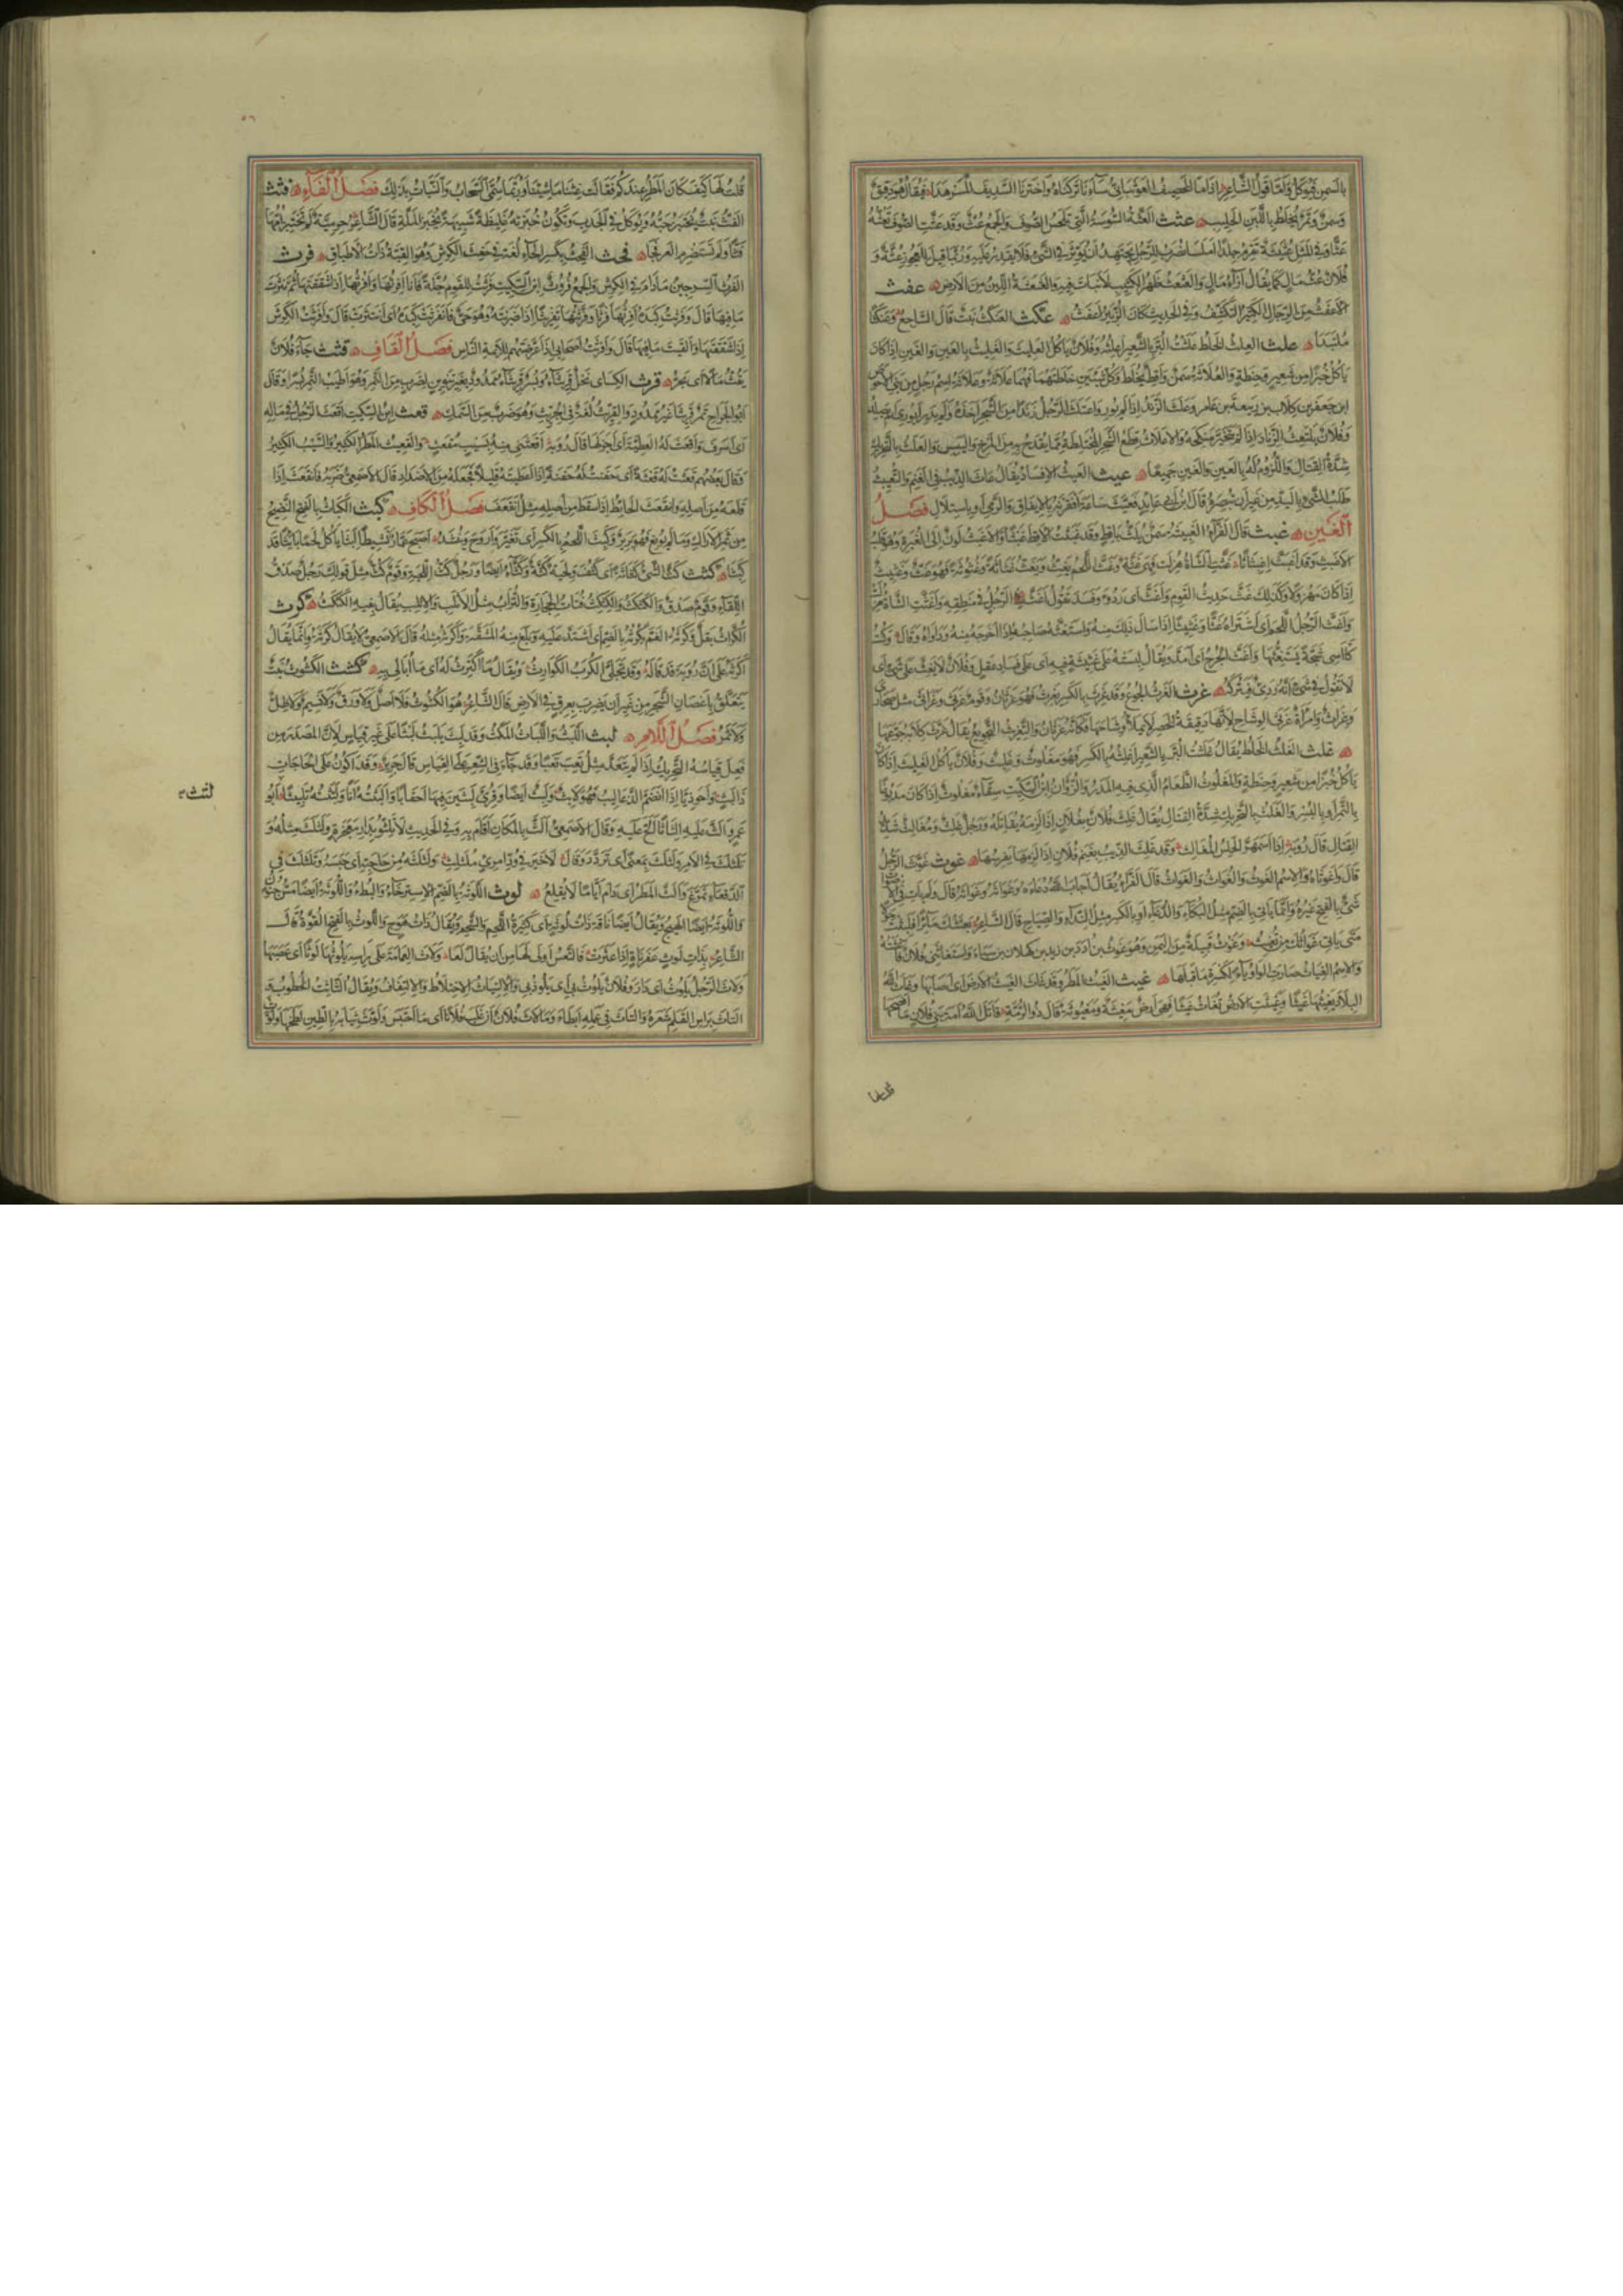 بالسمن فيؤكل وأما قول الشاعر إذا ما الخصيف العوبثاني ساءنا تركناه واخترنا السديف المسرهدا فيقال هو دقيق
وسمن وتمر يخلط باللبن الحليب عثث العثة السوسة التي تلحس الصوف والجمع عث وقد عثت الصوف تعثه
عثا وفي المثل عثيثة تقرم جلدا أملسا يضرب للرجل يجتهد أن يؤثر في الشيء فلا يقدر عليه وربما قيل للعجوز عثة و
فلان عث مال كما يقال إزاء مال والعثعث ظهر الكثيب لا نبات فيه والعثعثة اللين من الأرض عفث
الأعفث من الرجال الكثير التكشف وفي الحديث كان الزبير أعفث عكث العنكث نبت قال الراجز وعنكثا
ملتبدا علث العلث الخلط علثت البر بالشعير أعلثه وفلان يأكل العليث والغليث بالعين والغين إذا كان
يأكل خبزا من شعير وحنطة والعلاثة سمن وأقط يخلط وكل شيئين خلطتهما فهما علاثة وعلاثة اسم رجل من بني الأحوص
ابن جعفر بن كلاب بن ربيعة بن عامر وعلث الزند إذا لم يور واعتلث الرجل زندا من الشجر أخذه ولم يدر أيوري أم يصلد
وفلان يعتلث الزناد إذا لم يتخير منكحه والأعلاث قطع الشجر المختلطة مما يقدح به من المرخ واليبيس والعلث بالتحريك
شدة القتال واللزوم له بالعين والغين جميعا عيث العيث الإفساد يقال عاث الذئب في الغنم والتعييث
طلب الشيء باليد من غير أن تبصره قال ابن أبي عائذ فعيث ساعة أقفرنه بالإيفاق والرمي أو باستلال فصل
الغين غبث قال الفراء الغبيثة سمن يلت بأقط وقد غبثت الأقط غبثا والأغبث لون إلى الغبرة وهو قلب
الأبغث وقد أغبث إغبثاثا غثت الشاة هزلت فهي غثة وغث اللحم يغث ويغث غثاثة وغثوثة فهو غث وغثيث
إذا كان مهزولا وكذلك غث حديث القوم وأغث أي ردؤ وفسد تقول أغث الرجل في منطقه وأغثت الشاة هزلت
وأغث الرجل اللحم أي اشتراه غثا وغثيثا إذا سال ذلك منه واستغثه صاحبه إذا أخرجه منه وداواه وقال وكنت
كآسي شجة يستغثها وأغث الجرح أي أمد ويقال لبسته على غثيثة فيه أي على فساد عقل وفلان لا يغث على شيء أي
لا تقول في شيء إنه رديء فتتركه غرث الغرث الجوع وقد غرث بالكسر يغرث فهو غرثان وقوم غرثى وغراثى مثل صحارى
وغراث وامرأة غرثى الوشاح لأنها دقيقة الخصر لا يملأ وشاحها فكأنه غرثان والتغريث التجويع يقال غرث كلابه جوعها
غلث الغلث الخلط يقال غلثت البر بالشعير أغلثه بالكسر فهو مغلوث وغليث وفلان يأكل الغليث إذا كان
يأكل خبزا من شعير وحنطة والمغلوث الطعام الذي فيه المدر والزوان ابن السكيت سقاء مغلوث إذا كان مدبوغا
بالتمر أو بالبسر والغلث بالتحريك شدة القتال يقال غلث فلان بفلان إذا لزمه يقاتله ورجل غلث ومغالث شديد
القتال قال رؤبة إذا اسمهر الحلس المغالث وقد غلث الذئب بغنم فلان إذا لزمها يفرسها غوث غوث الرجل
قال واغوثاه والاسم الغوث والغواث والغواث قال الفراء يقال أجاب الله دعاءه وغواثه وغواثه قال ولم يأت في الأصوات
شيء بالفتح غيره وإنما يأتي بالضم مثل البكاء والدعاء أو بالكسر مثل النداء والصياح قال الشاعر بعثتك مائرا فلبثت حولا
متى يأتي غواثك من تغيث وغوث قبيلة من اليمن وهو غوث بن أدد بن زيد بن كهلان بن سبأ واستغاثني فلان فأغثته
والاسم الغياث صارت الواو ياء لكسرة ما قبلها غيث الغيث المطر وقد غاث الغيث الأرض أي أصابها وغاث الله
البلاد يغيثها غيثا وغيثت الأرض تغاث غيثا فهي أرض مغيثة ومغيوثة قال ذو الرمة قاتل الله أمة بني فلان ما أفصحها
قلت لها
قلت لها كيف كان المطر عندكم فقالت غثنا ما شئنا وربما سمي السحاب والنبات بذلك فصل الفاء فثث
الفث نبت يختبز حبه ويؤكل في الجدب وتكون خبزته غليظة شبيهة بخبز الملة قال الشاعر حرمية لم تختبز أمها
فثا ولم تستضرم العرفجا فحث الفحث بكسر الحاء لغة في حفث الكرش وهو القبة ذات الأطباق فرث
الفرث السرجين ما دام في الكرش والجمع فروث ابن السكيت فرثت للقوم جلة فأنا أفرثها وأفرثها إذا شققتها ثم نثرت
ما فيها قال وفرثت كبده أفرثها فرثا وفرثتها تفريثا إذا ضربته وهو حي فانفرثت كبده أي انتثرت قال وأفرثت الكرش
إذا شققتها وألقيت ما فيها قال وأفرثت أصحابي إذا عرضتهم للائمة الناس فصل القاف قثث جاء فلان
يقث مالا أي يجره قرث الكسائي نخل قريثاء وبسر قريثاء ممدود بغير تنوين لضرب من التمر وهو أطيب التمر بسرا وقال
أبو الجراح تمر قريثا غير ممدود والقريث لغة في الجريث وهو ضرب من السمك قعث ابن السكيت أقعث الرجل في ماله
أي أسرف وأقعث له العطية أي أجزلها قال رؤبة أقعثني منه بسيب مقعث والقعيث المطر الكثير والسيب الكثير
وقال بعضهم قعثت له قعثة أي حفنت له حفنة إذا أعطيته قليلا فجعله من الأضداد قال الأصمعي ضربه فانقعث إذا
قلعه من أصله وانقعث الحائط إذا سقط من أصله مثل انقعف فصل الكاف كبث الكباث بالفتح النضيج
من ثمر الأراك وما لم يونع فهو برير وكبث اللحم بالكسر أي تغير وأروح وينشد أصبح عمار نشيطا أبثا يأكل لحما بائتا قد
كبثا كثث كث الشيء كثاثة أي كثف ولحية كثة وكثاء أيضا ورجل كث اللحية وقوم كث مثل قولك رجل صدق
اللقاء وقوم صدق والكثكث والكثكث فتات الحجارة والتراب مثل الأثلب والإثلب يقال بفيه الكثكث كرث
الكراث بقل وكرثه الغم يكرثه بالضم أي اشتد عليه وبلغ منه المشقة وأكرثه مثله قال الأصمعي لا يقال كرثه وإنما يقال
أكرثه على أن رؤبة قد قاله وقد تجلي الكرب الكوارث ويقال ما أكترث له أي ما أبالي به كشث الكشوث نبت
يتعلق بأغصان الشجر من غير أن يضرب بعرق في الأرض قال الشاعر هو الكشوث فلا أصل ولا ورق ولا نسيم ولا ظل
ولا ثمر فصل اللام لبث اللبث واللباث المكث وقد لبث يلبث لبثا على غير قياس لأن المصدر من
فعل قياسه التحريك إذا لم يتعد مثل تعب تعبا وقد جاء في الشعر على القياس قال جرير وقد أكون على الحاجات
ذا لبث وأحوذيا إذا انضم الذعاليب فهو لابث ولبث أيضا وقرئ لبثين فيها أحقابا وألبثته أنا ولبثته تلبيثا أبو
لثث
عمرو ألث عليه إلثاثا ألح عليه وقال الأصمعي ألث بالمكان أقام به وفي الحديث لا تلثوا بدار معجزة ولثلث مثله و
تلثلث في الأمر ولثلث بمعنى أي تردد وقال لا خير في ود امرئ ملثلث ولثلثه من حاجته أي حبسه وتلثلث في
الدقعاء تمرغ وألث المطر أي دام أياما لا يقلع لوث اللوثة بالضم الاسترخاء والبطء واللوثة أيضا مس جنون
واللوثة أيضا الهيج ويقال أيضا ناقة ذات لوثة أي كثيرة اللحم والشحم ويقال ذات هوج واللوث بالفتح القوة قال
الشاعر بذات لوث عفرناة إذا عثرت فالتعس أولى لها من أن يقال لعا ولاث العمامة على رأسه يلوثها لوثا أي عصبها
ولاث الرجل يلوث أي دار وفلان يلوث بي أي يلوذ بي والالتياث الاختلاط والالتفاف ويقال التاثت الخطوب و
التاث برأس القلم شعرة والتاث في عمله أبطأ وما لاث فلان أن غلب فلانا أي ما احتبس ولوث ثيابه بالطين لطخها ولوث